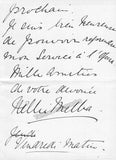 prochain.
Je suis très heureuse
de pouvoir reprendre
mon Service à l'Opéra
Mille Amitiés
de votre dévouée
Nellie Melba
Vendredi Matin